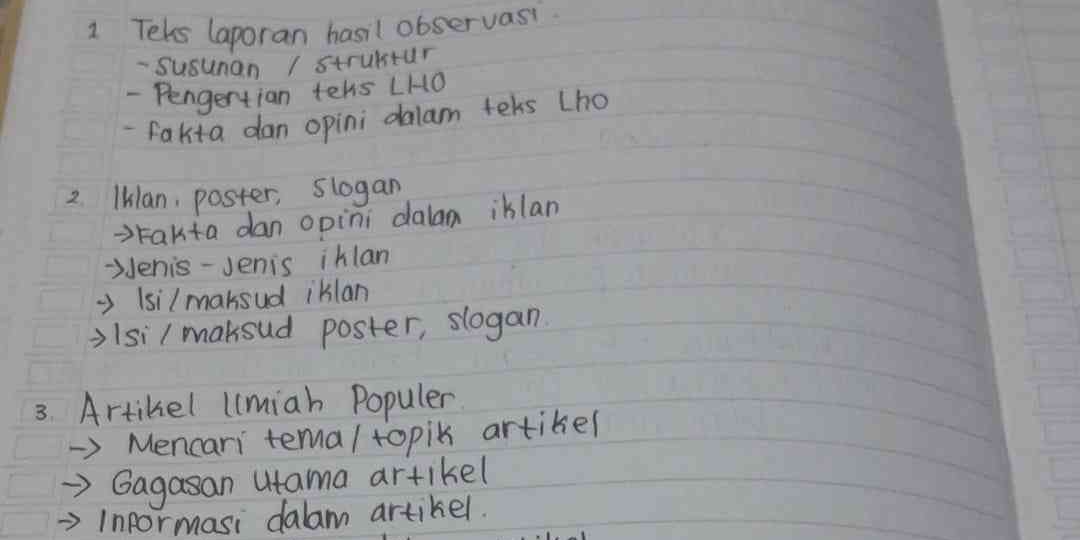 1 Teks laporan hasil observasi.
- Susunan / struktur
- Pengertian teks LHO
- Fakta dan opini dalam teks Lho
2. Iklan, poster, slogan
→ Fakta dan opini dalam iklan
→ Jenis - Jenis iklan
→ Isi / maksud iklan
→ Isi / maksud poster, slogan.
3. Artikel Ilmiah Populer.
→ Mencari tema / topik artikel
→ Gagasan utama artikel
→ Informasi dalam artikel.